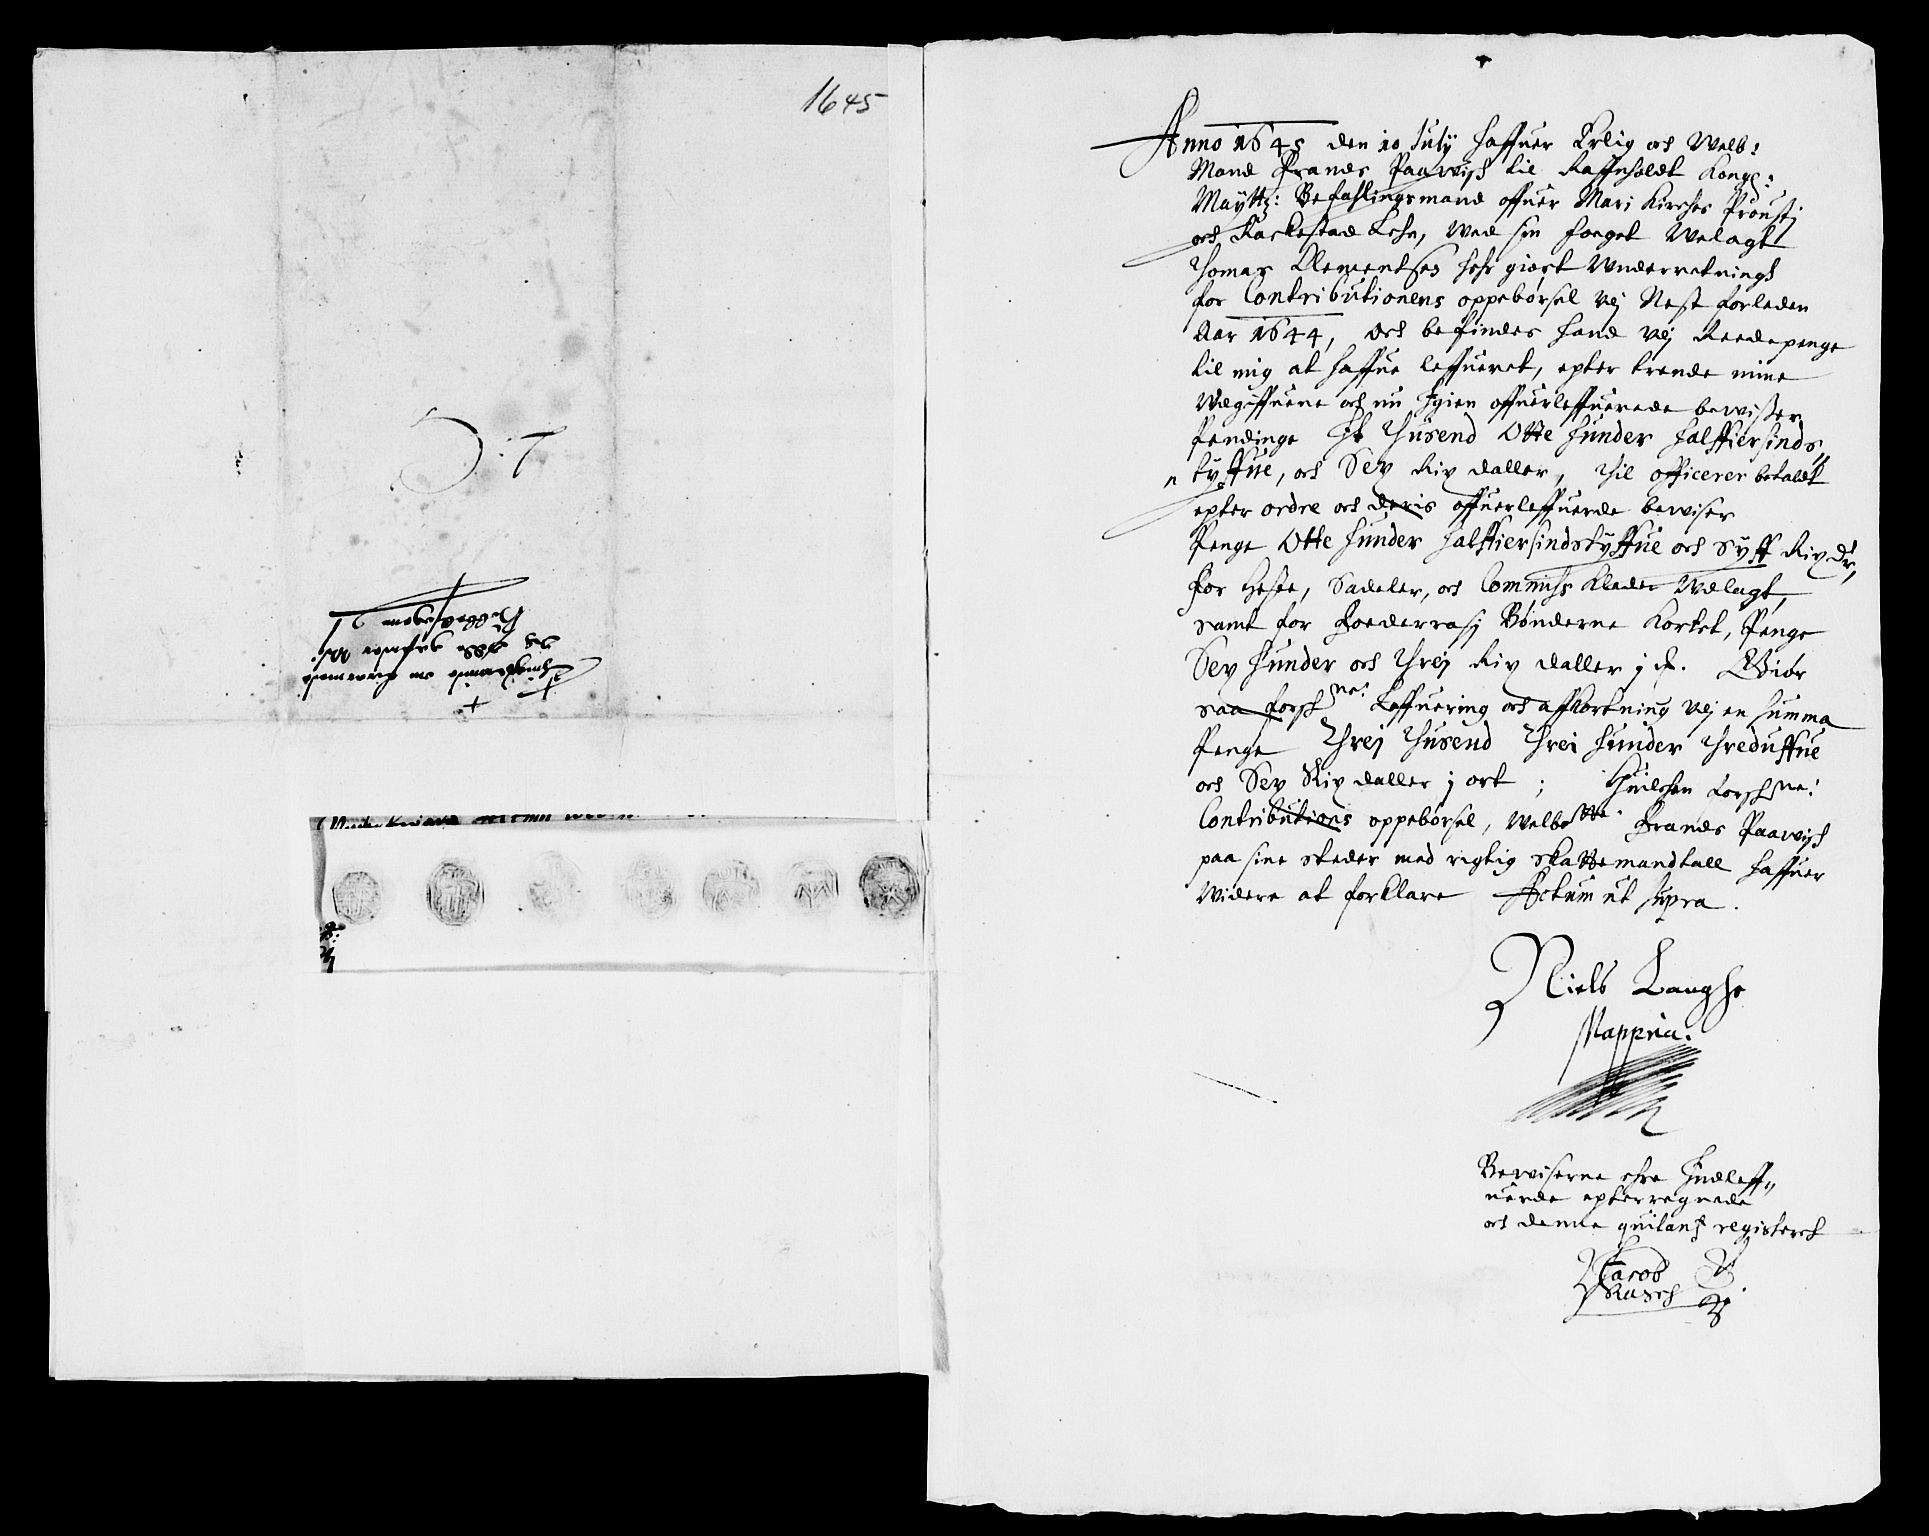 1645
Anno 1645 den 10 July haffuer Erlig och Welb:
Mand Frands Paawisch til Raffnholdt Kongl:
Maÿttz: Befahlingsmand offuer Mari Kirches Prousti
och Rackestad Lehn, Wed sin foeget Welagt
Thomas Clementsen hehr giort Underretningh
for Contributionens oppebørsel Vdj Nest forleden
Aar 1644, Och befindes hand Vdj Reedepenge
til mig at haffue leffueret, epter trende mine
Udgiffuene och nu Igien offuerleffuerede bewisser
Pendinge It Thusend Otte Hunder Halffiersinds„
„tyffue, och Sex Rix daller, Til officerer betaldt
epter ordre och deris offuerleffuerde bewiser
Penge Otte Hunder Halffiersindstyffue och Syff Rix dr,
for Heste, Sadeler, och Commihs Klæder Udlagt,
samt for Foederrasj Bønderne Kortet, Penge
Sex Hunder och Threj Rix daller j ß. Giør
saa forsch ne: Leffuering och affkortning Vdj en Summa
Penge Threj Thusend Threi Hunder Threduffue
och Sex Rix daller j ort ; Huilchen forsch ne:
Contributions oppebørsel, Welbette: Frands Paawisch
paa sine steder med rigtig skatte mandtall haffuer
Widere at forklare Actum ut supra.
Niels Langhe
Mappria.
Bewiserne ehre Indleff„
uerde epterregnede
och denne quitants registerch
Jacob
Rasch